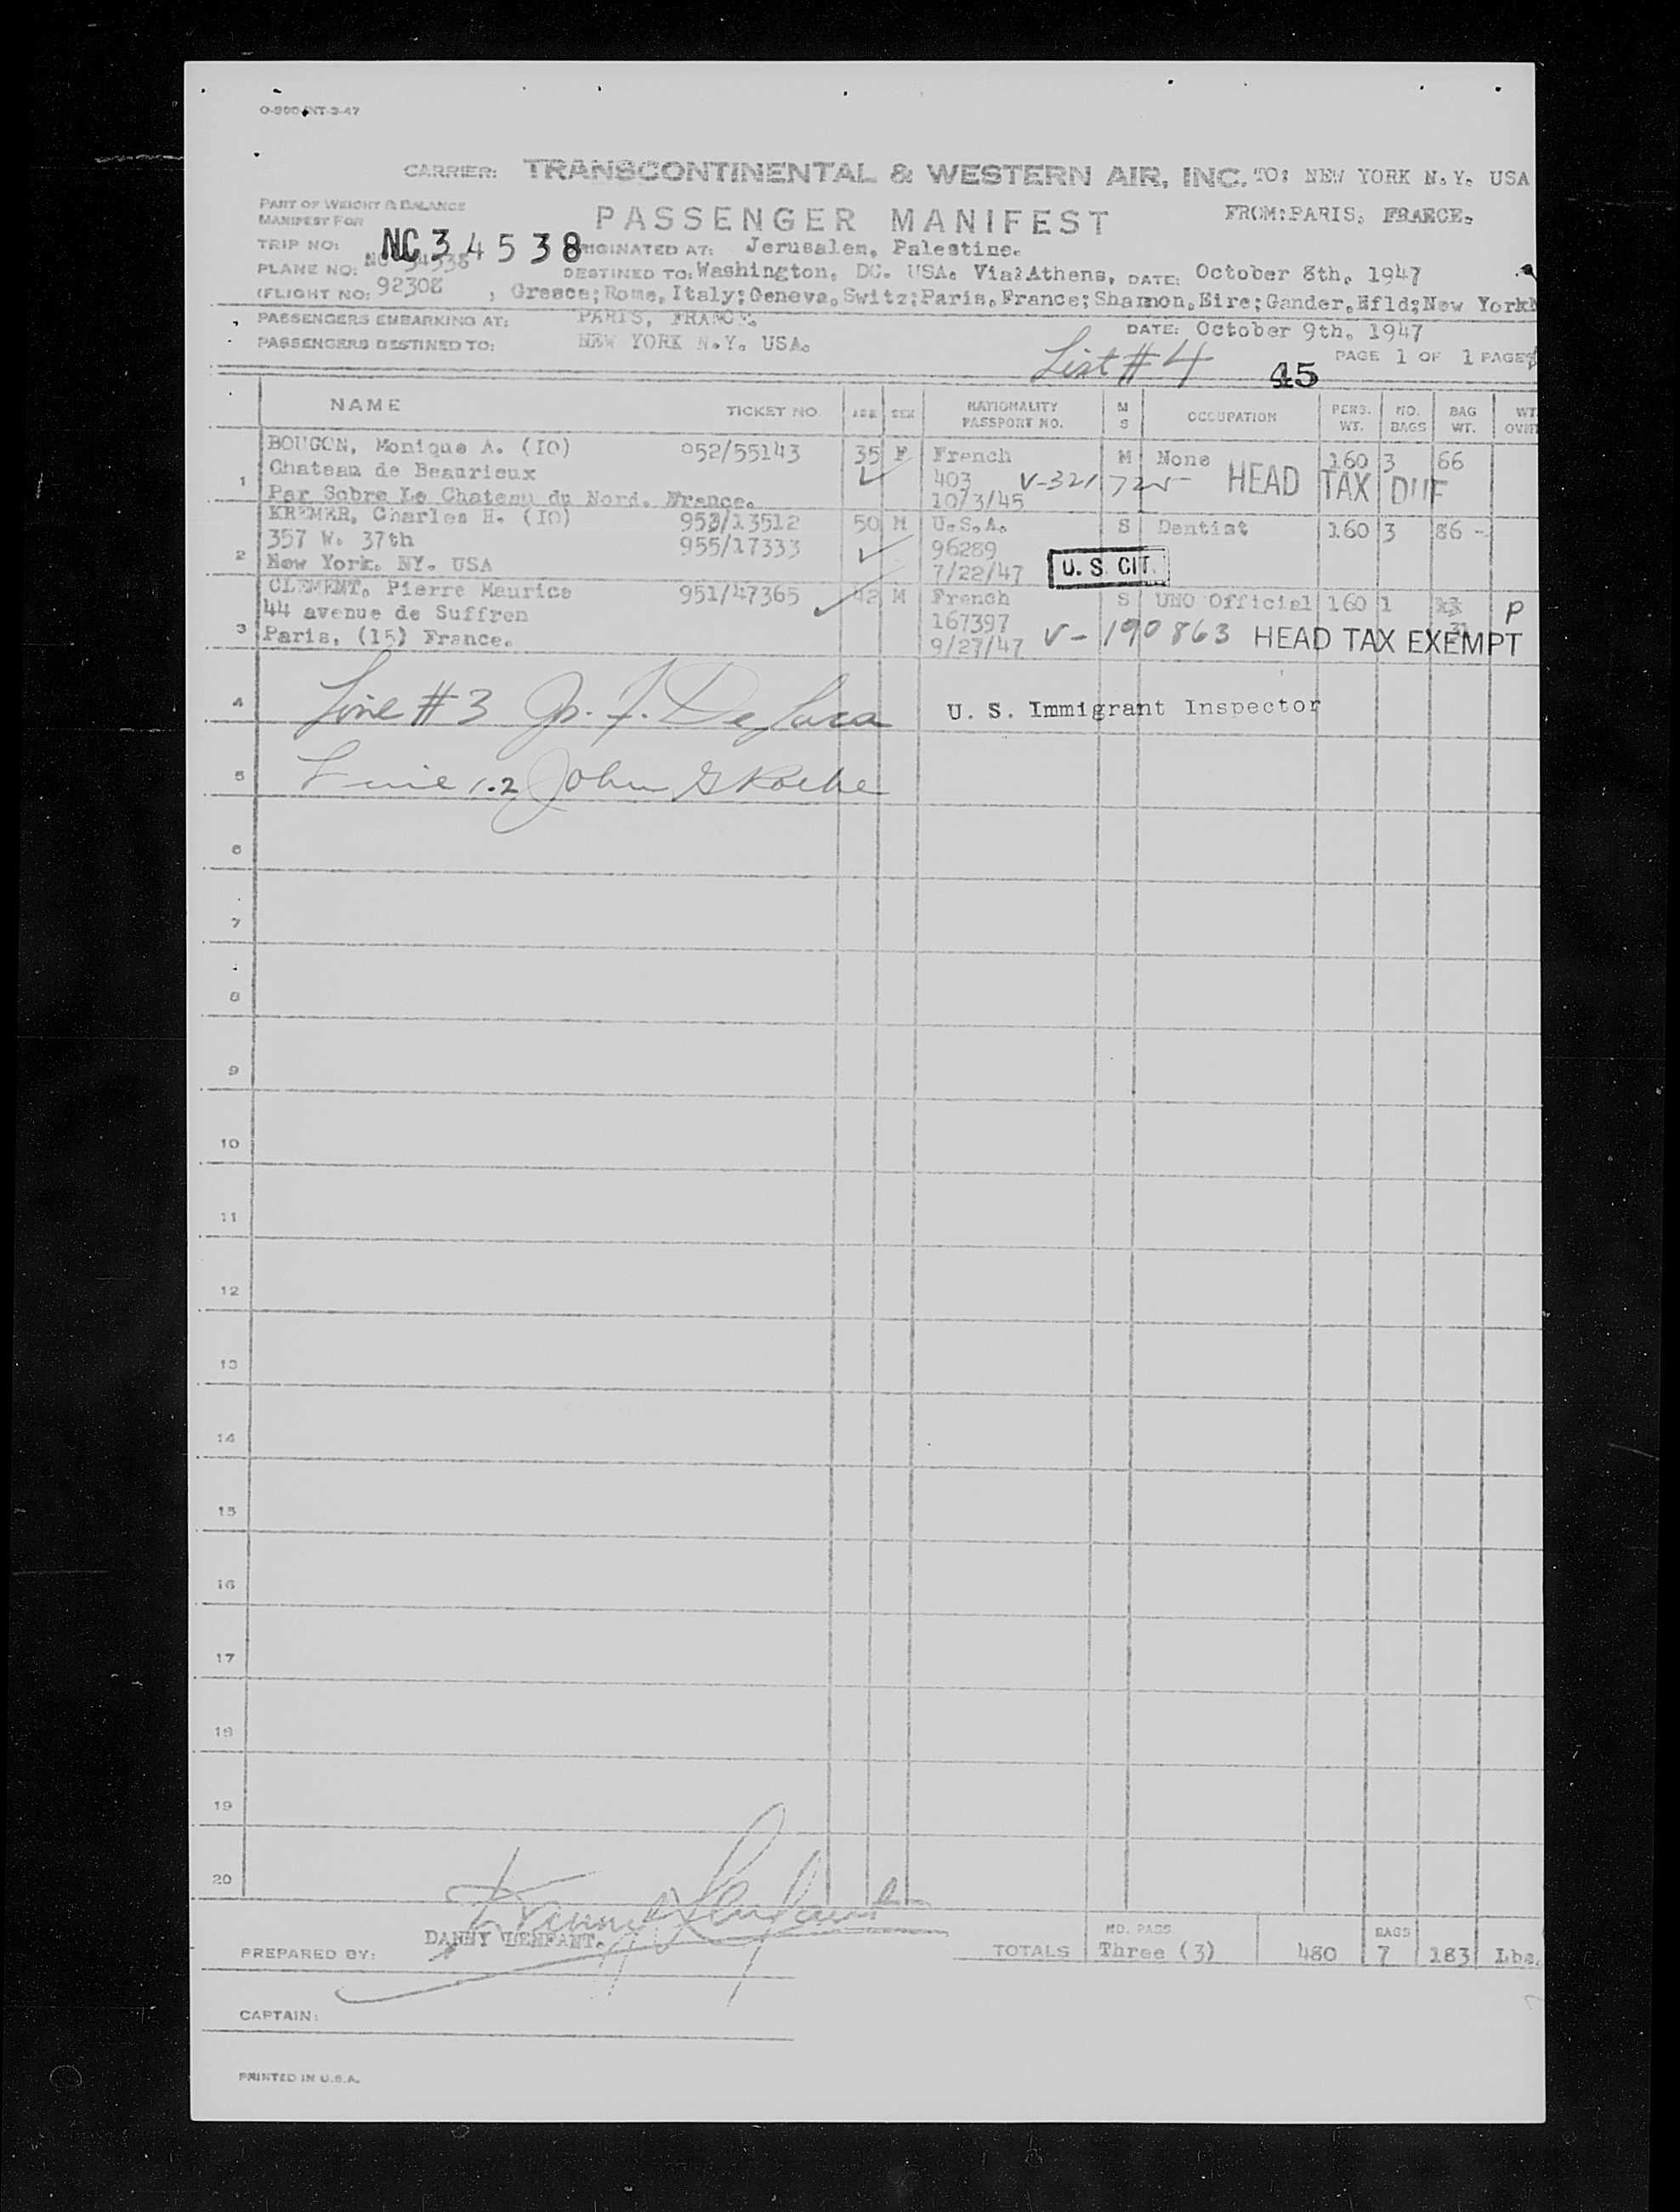 O-900 INT-3-47
CARRIER: TRANSCONTINENTAL & WESTERN AIR, INC. TO: NEW YORK N.Y. USA
PART OF WEIGHT & BALANCE
MANIFEST FOR
PASSENGER MANIFEST
FROM:PARIS, FRARCE.
TRIP NO: NC34538
ORIGINATED AT: Jerusalem, Palestine.
PLANE NO: NC 34538
DESTINED TO: Washington, DC. USA. Via: Athens, DATE: October 8th, 1947
(FLIGHT NO: 92308 , Greece;Rome,Italy;Geneva,Switz;Paris,France;Shannon,Eire;Gander,Nfld;New York
PASSENGERS EMBARKING AT: PARIS, FRANCE.
DATE: October 9th, 1947
PASSENGERS DESTINED TO: NEW YORK N.Y. USA.
List # 4
45
PAGE 1 OF 1 PAGES
NAME TICKET NO. AGE SEX NATIONALITY PASSPORT NO. M S OCCUPATION PERS. WT. NO. BAGS BAG WT. WT.
BOUGON, Monique A. (IO) 052/55143 35 F French M None 160 3 66
Chateau de Beaurieux 403 V-321725 HEAD TAX DUE
1 Par Sobre Le Chateau du Nord. France. 10/3/45
KREMER, Charles H. (IO) 953/13512 50 M U.S.A. S Dentist 160 3 86 -
357 W. 37th 955/17333 96289
2 New York. NY. USA 7/22/47 U. S. CIT.
CLEMENT, Pierre Maurice 951/47365 42 M French S UNO Official 160 1 P
44 avenue de Suffren 167397 31
3 Paris, (15) France. 9/27/47 V-190863 HEAD TAX EXEMPT
4 Line # 3 U. S. Immigrant Inspector
5 Line 1.2 John G Roche
6
7
8
9
10
11
12
13
14
15
16
17
18
19
20
PREPARED BY: DANNY LENFANT.
NO. PASS. BAGS
TOTALS Three (3) 480 7 183 Lbs.
CAPTAIN:
PRINTED IN U.S.A.